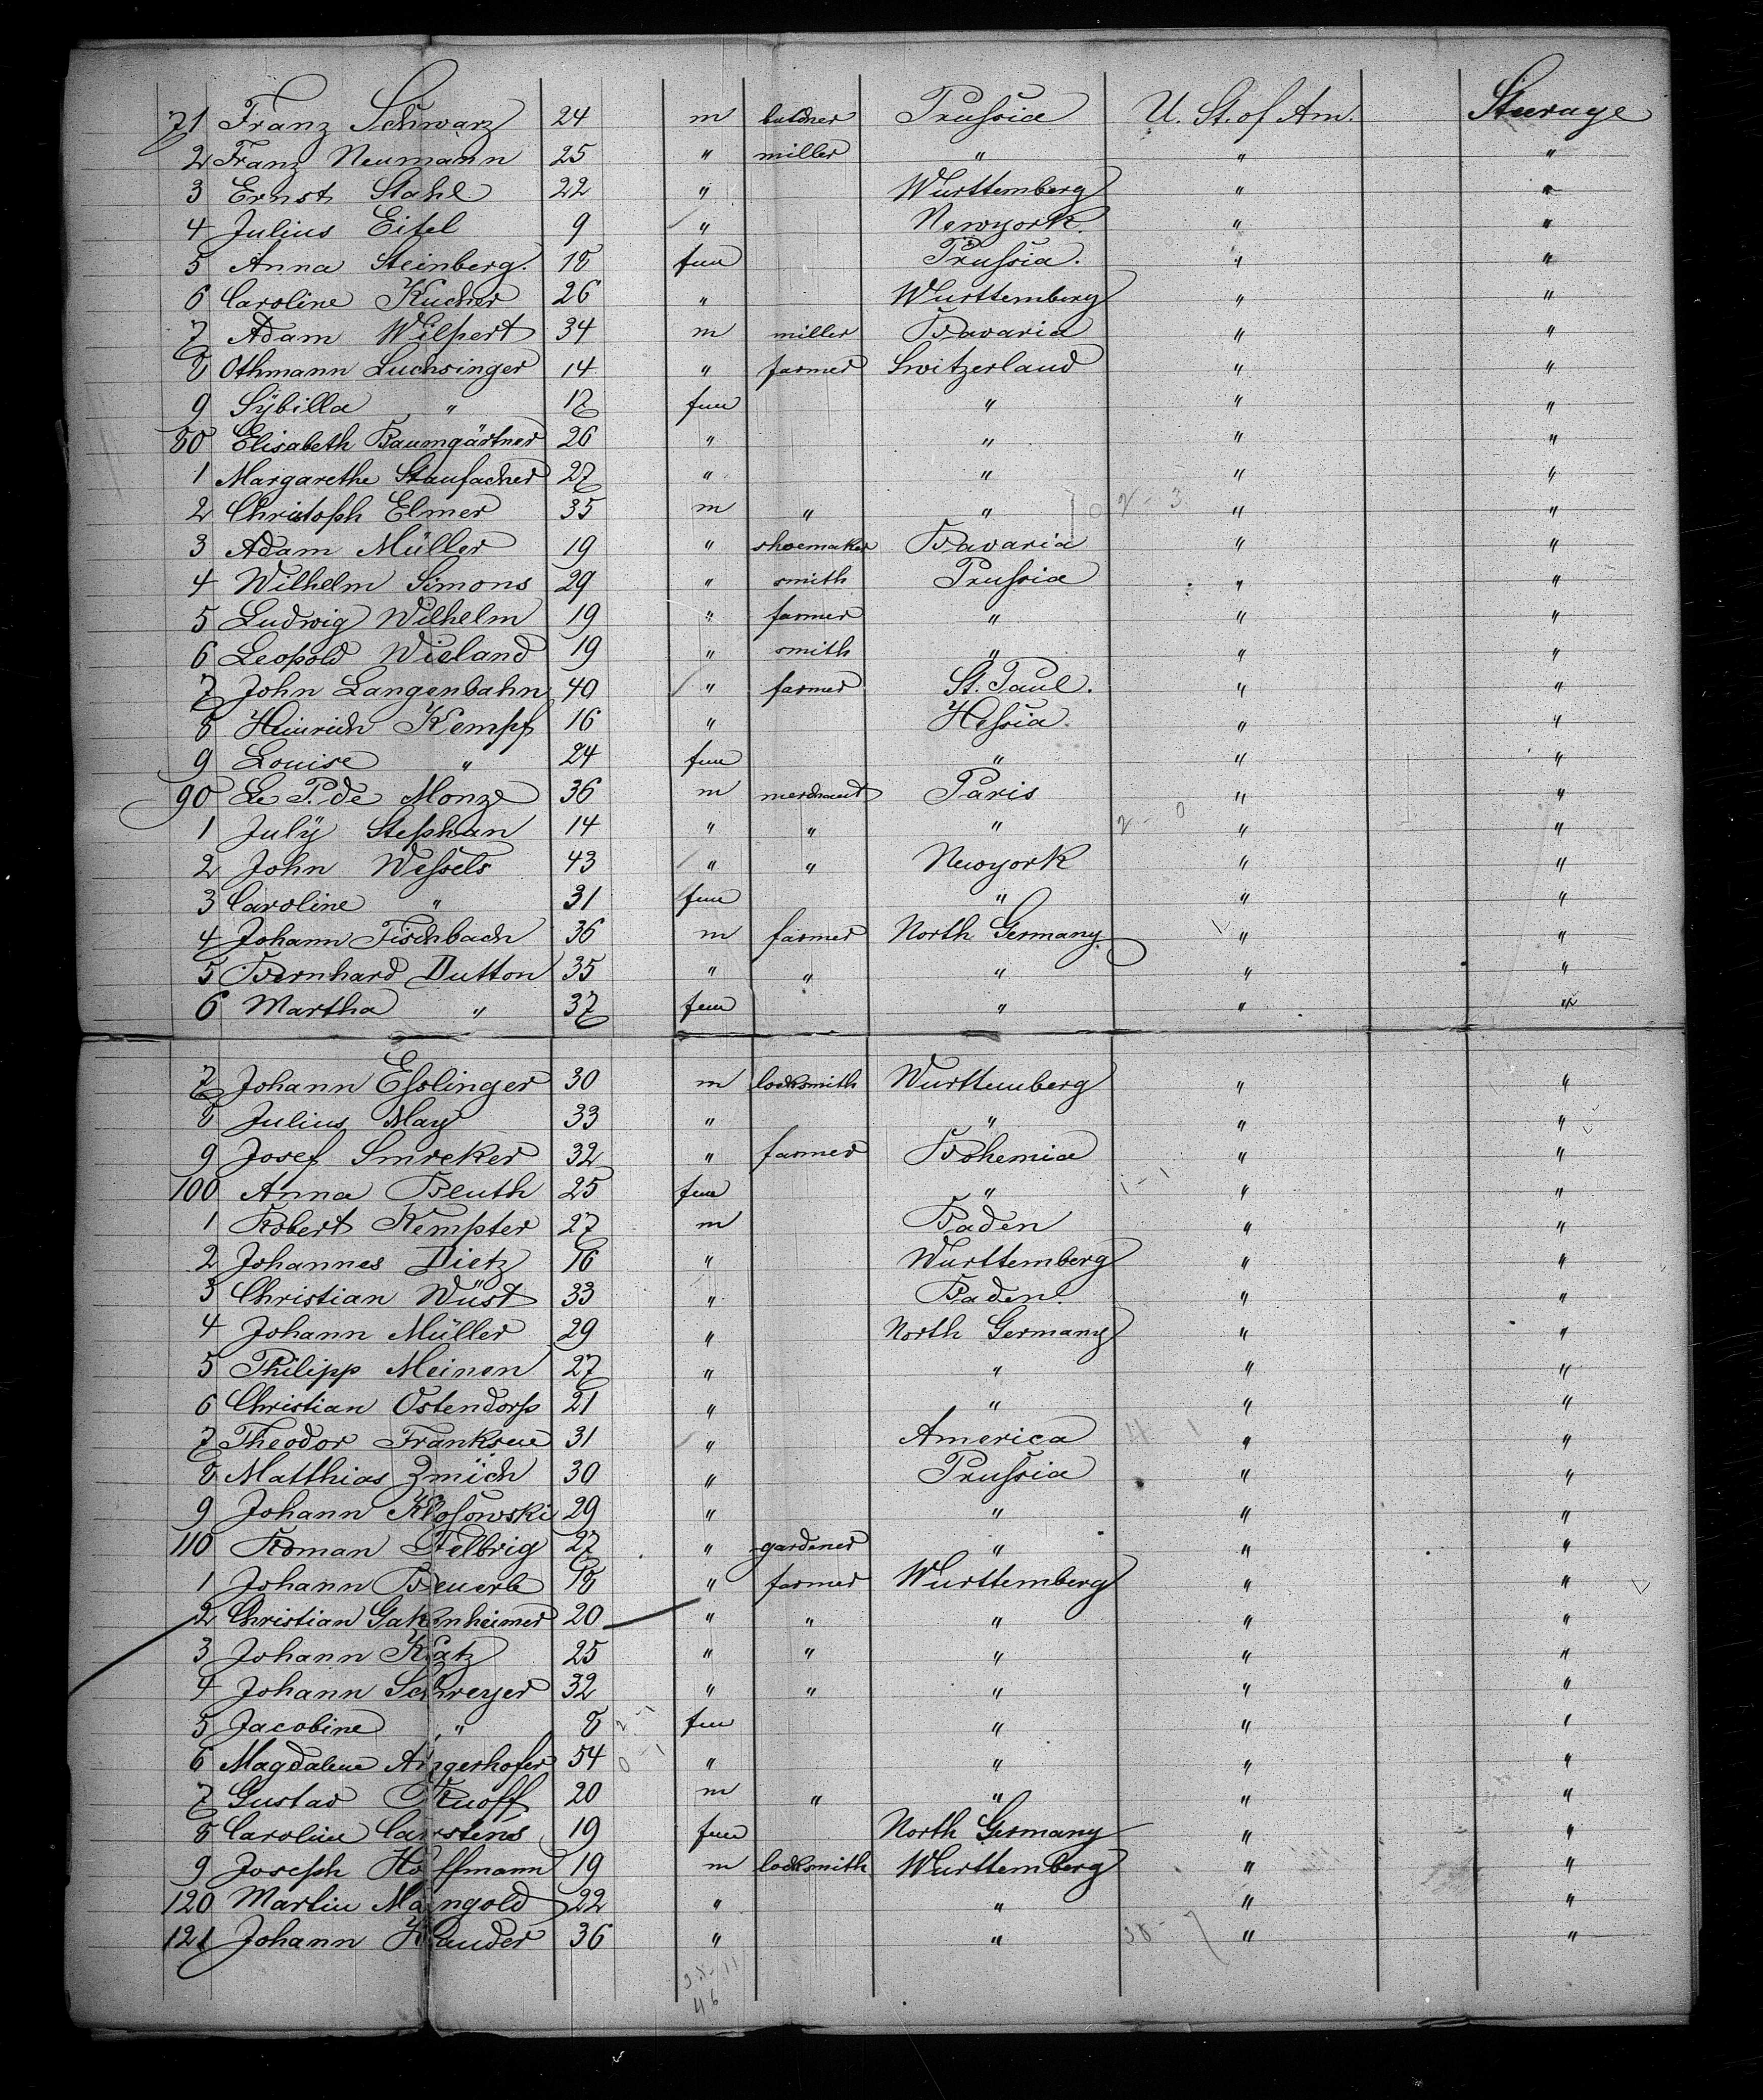 71 Franz Schwarz 24 m butcher Prussia U. St. of Am. Steerage
2 Franz Neumann 25 " miller " " "
3 Ernst Stahl 22 " Wurttemberg " "
4 Julius Eitel 9 " Newyork. " "
5 Anna Steinberg. 18 fem Prussia. " "
6 Caroline Kucher 26 " Wurttemberg " "
7 Adam Wilpert 34 m miller Bavaria " "
8 Othmann Luchsinger 14 " farmer Switzerland " "
9 Sÿbilla " 17 fem " " "
80 Elisabeth Baumgärtner 26 " " " "
1 Margarethe Staufacher 27 " " " "
2 Christoph Elmer 35 m " " " "
3 Adam Müller 19 " shoemaker Bavaria " "
4 Wilhelm Simons 29 " smith Prussia " "
5 Ludwig Wilhelm 19 " farmer " " "
6 Leopold Wieland 19 " smith " " "
7 John Langenbahn 40 " farmer St. Paul. " "
8 Heinrich Kempf 16 " Hessia. " "
9 Louise " 24 fem " " "
90 Le P. de Monze 36 m merchant Paris " "
1 Julÿ Stephan 14 " " " " "
2 John Wessels 43 " " Newyork " "
3 Caroline " 31 fem " " "
4 Johann Fischbach 36 m farmer North Germany. " "
5 Bernhard Dutton 35 " " " " "
6 Martha " 37 fem " " "
7 Johann Esslinger 30 m locksmith Wurttemberg " "
8 Julius May 33 " " " "
9 Josef Smreker 32 " farmer Bohemia " "
100 Anna Beuth 25 fem " " "
1 Robert Kempter 27 m Baden " "
2 Johannes Dietz 16 " Wurttemberg " "
3 Christian Wüst 33 " Baden. " "
4 Johann Müller 29 " North Germany " "
5 Philipp Meinen 27 " " " "
6 Christian Ostendorp 21 " " " "
7 Theodor Franksen 31 " America " "
8 Matthias Zmich 30 " Prussia " "
9 Johann Klosowski 29 " " " "
110 Roman Helbrig 27 " gardener " " "
1 Johann Beuerle 18 " farmer Wurttemberg " "
2 Christian Gakenheimer 20 " " " " "
3 Johann Katz 25 " " " " "
4 Johann Schreyer 32 " " " " "
5 Jacobine " 8 fem " " "
6 Magdalene Angerhofer 54 " " " "
7 Gustav Knoff 20 m " " " "
8 Caroline Carstens 19 fem North Germany " "
9 Joseph Hoffmann 19 m locksmith Wurttemberg " "
120 Martin Mangold 22 " " " "
121 Johann Klauder 36 " " " "